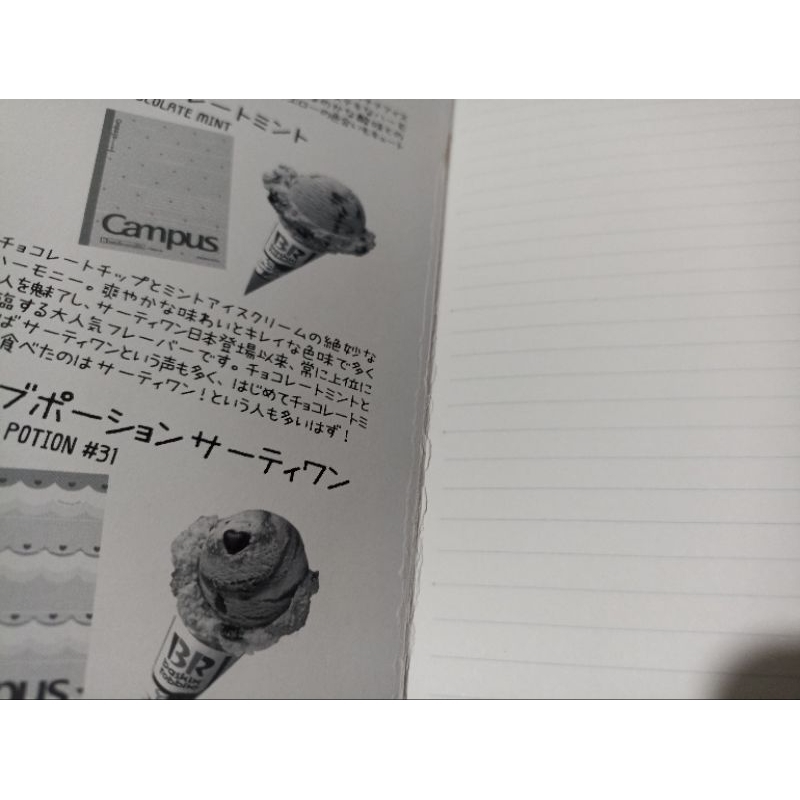 レートミント
OLATE MINT
Campus
BR
チョコレートチップとミントアイスクリームの絶妙な
ハーモニー。爽やかな味わいとキレイな色味で多く
人を魅了し、サーティワン日本登場以来、常に上位に
臨する大人気フレーバーです。チョコレートミントと
ば サーティワンという声も多く、はじめてチョコレートミ
食べたのは サーティワン！という人も多いはず！
ブポーションサーティワン
POTION #31
BR
baskin
robbins
pus